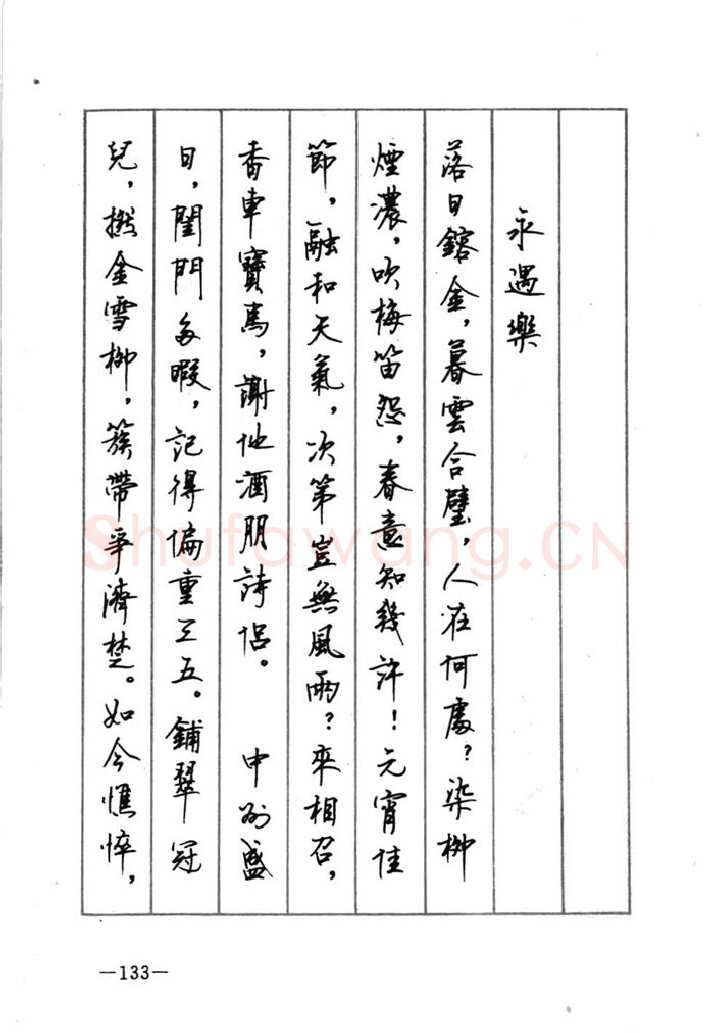 永遇樂
落日鎔金，暮雲合璧，人在何處？染柳
煙濃，吹梅笛怨，春意知幾許！元宵佳
節，融和天氣，次第豈無風雨？來相召，
香車寶馬，謝他酒朋詩侶。　中州盛
日，閨門多暇，記得偏重三五。鋪翠冠
兒，撚金雪柳，簇帶爭濟楚。如今憔悴，
Shufawang.CN
—133—